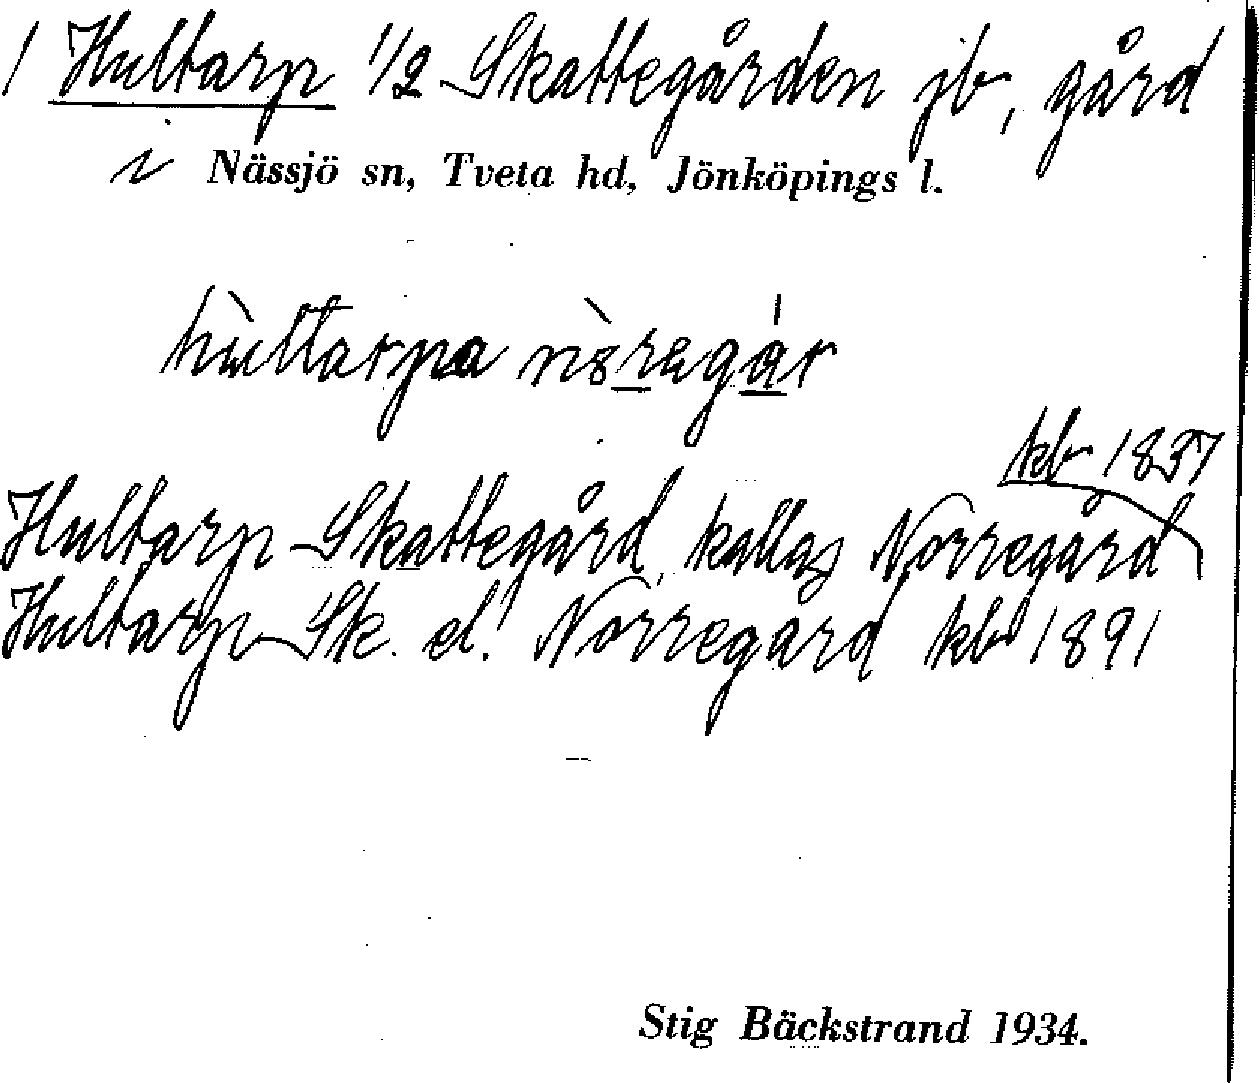 1 Hultarp 1/2 Skattegården jb, gård
i Nässjö sn, Tveta hd, Jönköpings l.
hùltarpa nòregár
kb 1837
Hultarp Skattegård, kallas Norregård
Hultarp Sk. el. Norregård kb 1891
Stig Bäckstrand 1934.